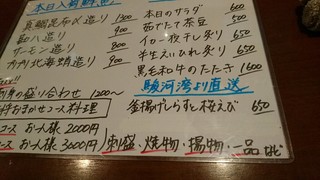 本日入荷鮮魚
真鯛昆布〆造り 1300
蛸ハ造り 900
サーモン造り 900
カナダ北海蛸造り 900
刺身の盛り合わせ 1200〜
おまかせコース料理
コース お一人様 2000円
コース お一人様 3000円
本日のサラダ 600
茹でたて茶豆 500
イカ一夜干し炙り 650
半生えいひれ炙り 650
黒毛和牛のたたき 1600
駿河湾より直送
釜揚げしらすと桜えび 650
刺盛・焼物・揚物・一品 ほか